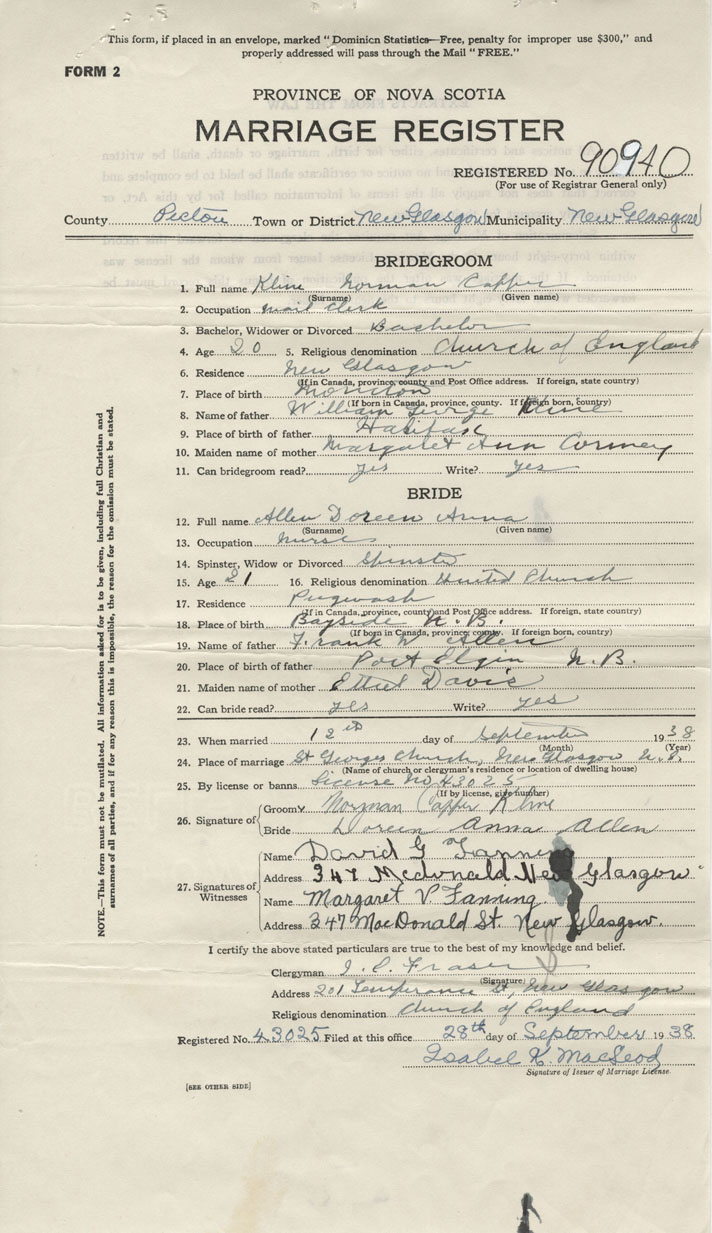 This form, if placed in an envelope, marked "Dominicn Statistics—Free, penalty for improper use $300," and
properly addressed will pass through the Mail "FREE."
FORM 2
PROVINCE OF NOVA SCOTIA
MARRIAGE REGISTER
REGISTERED No. 90940
(For use of Registrar General only)
County Pictou Town or District New Glasgow Municipality New Glasgow
BRIDEGROOM
1. Full name Kline Norman Capper
(Surname) (Given name)
2. Occupation mail clerk
3. Bachelor, Widower or Divorced Bachelor
4. Age 20 5. Religious denomination Church of England
6. Residence New Glasgow
(If in Canada, province, county and Post Office address. If foreign, state country)
7. Place of birth Moncton
(If born in Canada, province, county. If foreign born, country)
8. Name of father William George Kline
9. Place of birth of father Halifax
10. Maiden name of mother Margaret Ann Cormey
11. Can bridegroom read? yes Write? yes
BRIDE
12. Full name Allen Doreen Anna
(Surname) (Given name)
13. Occupation Nurse
14. Spinster, Widow or Divorced Spinster
15. Age 21 16. Religious denomination United Church
17. Residence Pugwash
(If in Canada, province, county and Post Office address. If foreign, state country)
18. Place of birth Bayside N. B.
(If born in Canada, province, county. If foreign born, country)
19. Name of father Frank W Allen
20. Place of birth of father Port Elgin N. B.
21. Maiden name of mother Ethel Davis
22. Can bride read? yes Write? yes
23. When married 12th day of September 1938
(Month) (Year)
24. Place of marriage St Georges Church, New Glasgow N. S.
(Name of church or clergyman's residence or location of dwelling house)
25. By license or banns License No 43025
(If by license, give number)
26. Signature of Groom Norman Capper Kline
Bride Doreen Anna Allen
27. Signatures of Witnesses
Name David G Fanning
Address 347 Mcdonald New Glasgow
Name Margaret V. Fanning
Address 347 MacDonald St. New Glasgow.
I certify the above stated particulars are true to the best of my knowledge and belief.
Clergyman J. E. Fraser
(Signature)
Address 201 Temperance St, New Glasgow
Religious denomination Church of England
Registered No. 43025 Filed at this office 28th day of September 1938
Isabel K. MacLeod
Signature of Issuer of Marriage License
[SEE OTHER SIDE]
NOTE.—This form must not be mutilated. All information asked for is to be given, including full Christian and
surnames of all parties, and if for any reason this is impossible, the reason for the omission must be stated.